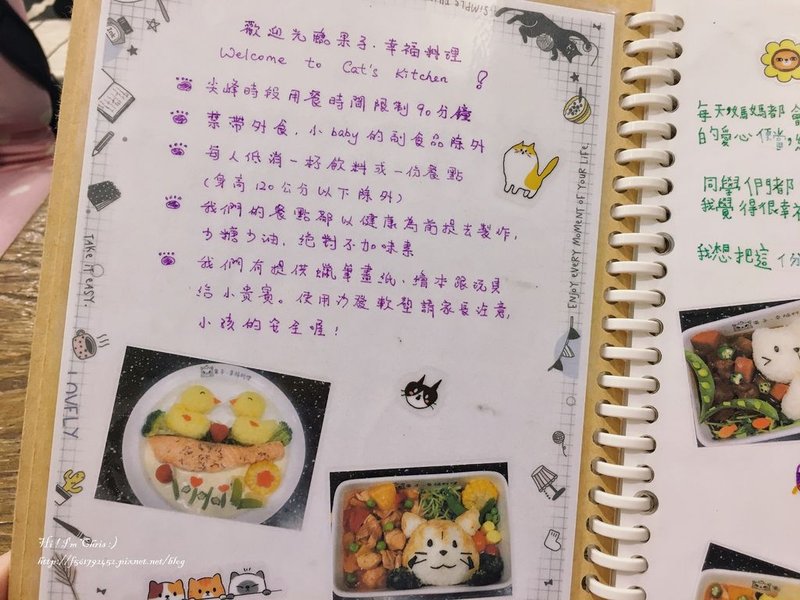 歡迎光臨 果子·幸福料理
Welcome to Cat's Kitchen !
尖峰時段用餐時間限制90分鐘
禁帶外食，小baby的副食品除外
每人低消一杯飲料或一份餐點
(身高120公分以下除外)
我們的餐點都以健康為前提去製作，
少糖少油，絕對不加味素
我們有提供蠟筆畫紙、繪本跟玩具
給小貴賓。使用
軟墊請家長注意，
小孩的安全喔！
TAKE IT EASY.
LOVELLY
SIMPLE
ENJOY EVERY MOMENT OF YOUR LIFE
果子·幸福料理
每天
媽都會
的愛心便當，
同學們都
我覺得很幸
我想把這份
Hi! I'm Chris :)
http://f501792452.pixnet.net/blog